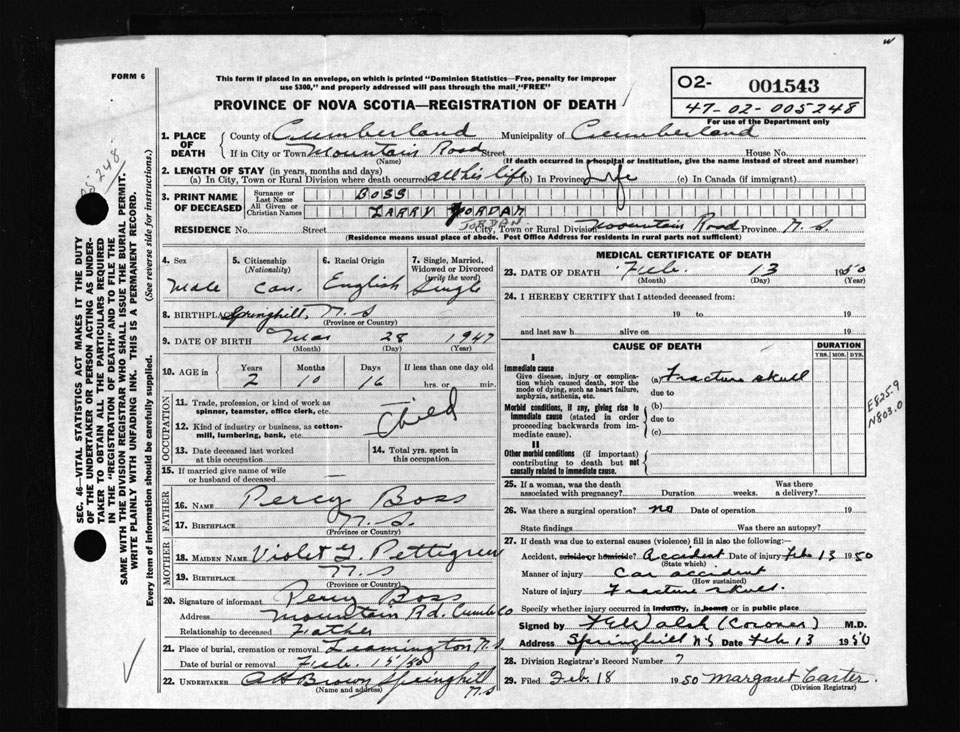 FORM 6
This form if placed in an envelope, on which is printed "Dominion Statistics—Free, penalty for improper
use $300," and properly addressed will pass through the mail "FREE"
PROVINCE OF NOVA SCOTIA—REGISTRATION OF DEATH
O2- 001543
47-02-005248
For use of the Department only
SEC. 46—VITAL STATISTICS ACT MAKES IT THE DUTY
OF THE UNDERTAKER OR PERSON ACTING AS UNDER-
TAKER TO OBTAIN ALL THE PARTICULARS REQUIRED
IN THE "REGISTRATION OF DEATH" AND TO FILE THE
SAME WITH THE DIVISION REGISTRAR WHO SHALL ISSUE THE BURIAL PERMIT.
WRITE PLAINLY WITH UNFADING INK. THIS IS A PERMANENT RECORD.
Every item of information should be carefully supplied. (See reverse side for instructions.)
1. PLACE OF DEATH County of Cumberland Municipality of Cumberland
If in City or Town Mountain Road Street House No.
(Name) (If death occurred in a hospital or institution, give the name instead of street and number)
2. LENGTH OF STAY (in years, months and days)
(a) In City, Town or Rural Division where death occurred all his life (b) In Province Life (c) In Canada (if immigrant)
3. PRINT NAME OF DECEASED Surname or Last Name BOSS
All Given or Christian Names LARRY JORDAN
JORDAN
RESIDENCE No. Street City, Town or Rural Division Mountain Road Province N.S.
(Residence means usual place of abode. Post Office Address for residents in rural parts not sufficient)
4. Sex Male
5. Citizenship (Nationality) Can.
6. Racial Origin English
7. Single, Married, Widowed or Divorced (write the word) Single
8. BIRTHPLACE Springhill, N.S
(Province or Country)
9. DATE OF BIRTH Mar 28 1947
(Month) (Day) (Year)
10. AGE in Years 2 Months 10 Days 16 If less than one day old hrs. or min.
OCCUPATION
11. Trade, profession, or kind of work as spinner, teamster, office clerk, etc.
Child
12. Kind of industry or business, as cotton-mill, lumbering, bank, etc.
13. Date deceased last worked at this occupation
14. Total yrs. spent in this occupation
15. If married give name of wife or husband of deceased
FATHER
16. NAME Percy Boss
17. BIRTHPLACE N.S.
(Province or Country)
MOTHER
18. MAIDEN NAME Violet G. Pettigrew
19. BIRTHPLACE N.S
(Province or Country)
20. Signature of informant Percy Boss
Address Mountain Rd. Cumb Co
Relationship to deceased Father
21. Place of burial, cremation or removal Leamington N.S
Date of burial or removal Feb. 15/50
22. UNDERTAKER AH Brown Springhill N.S
(Name and address)
MEDICAL CERTIFICATE OF DEATH
23. DATE OF DEATH Feb. 13 1950
(Month) (Day) (Year)
24. I HEREBY CERTIFY that I attended deceased from:
19 to 19
and last saw h alive on 19
CAUSE OF DEATH
DURATION
YRS. MOS. DYS.
I
Immediate cause
Give disease, injury or complication which caused death, NOT the mode of dying, such as heart failure, asphyxia, asthenia, etc.
(a) Fracture skull
due to
Morbid conditions, if any, giving rise to immediate cause (stated in order proceeding backwards from immediate cause).
(b)
due to
(c)
II
Other morbid conditions (if important) contributing to death but not causally related to immediate cause.
E825.9
N803.0
25. If a woman, was the death associated with pregnancy? Duration weeks. Was there a delivery?
26. Was there a surgical operation? no Date of operation 19
State findings Was there an autopsy?
27. If death was due to external causes (violence) fill in also the following:—
Accident, suicide or homicide? Accident Date of injury Feb 13 1950
(State which)
Manner of injury Car accident
(How sustained)
Nature of injury Fracture skull
Specify whether injury occurred in industry, in home or in public place
Signed by Walsh (Coroner) M.D.
Address Springhill N.S Date Feb 13 1950
28. Division Registrar's Record Number 7
29. Filed Feb. 18 1950 Margaret Carter.
(Division Registrar)